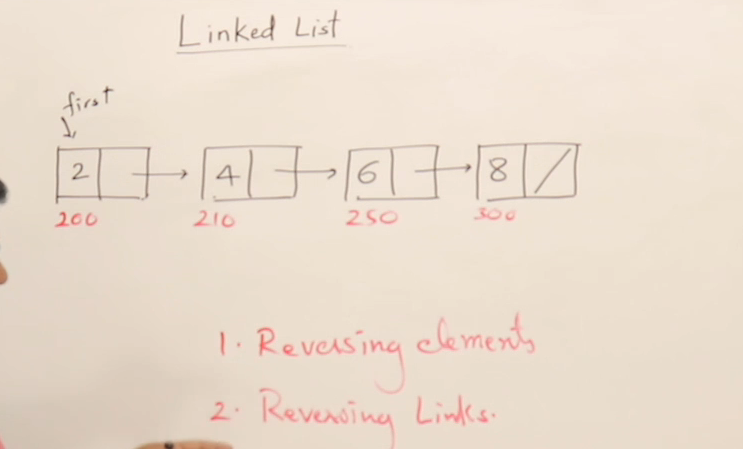 Linked List
first
2 4 6 8
200 210 250 300
1. Reversing elements
2. Reversing Links.